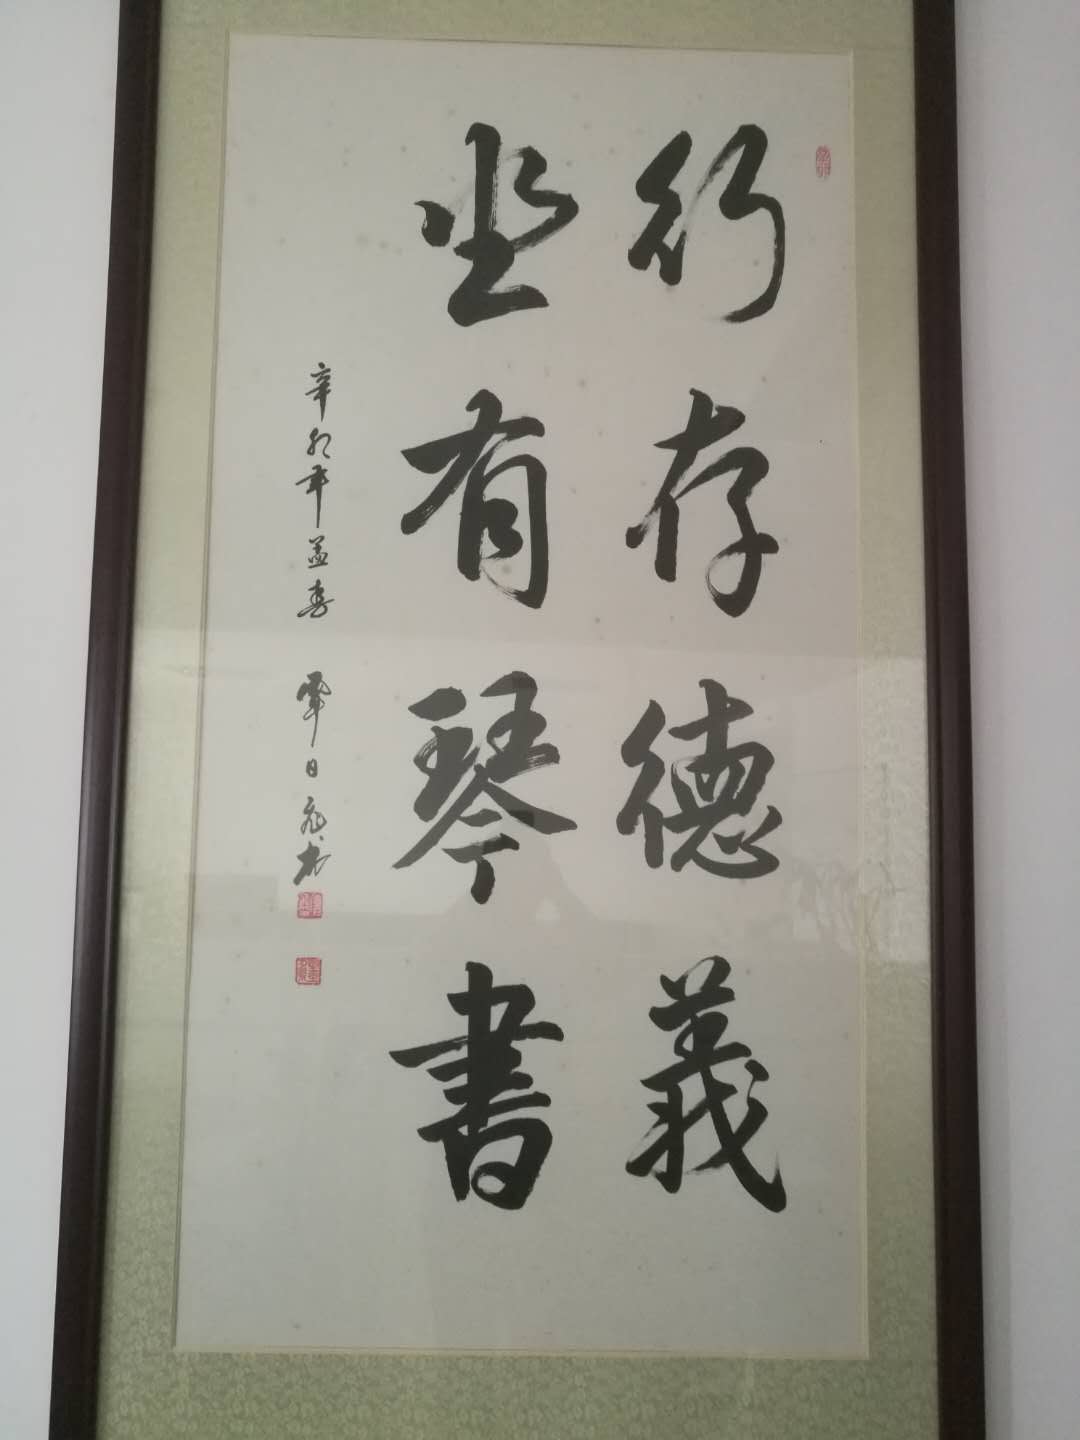 行存德義
坐有琴書
辛卯年孟春 覃日